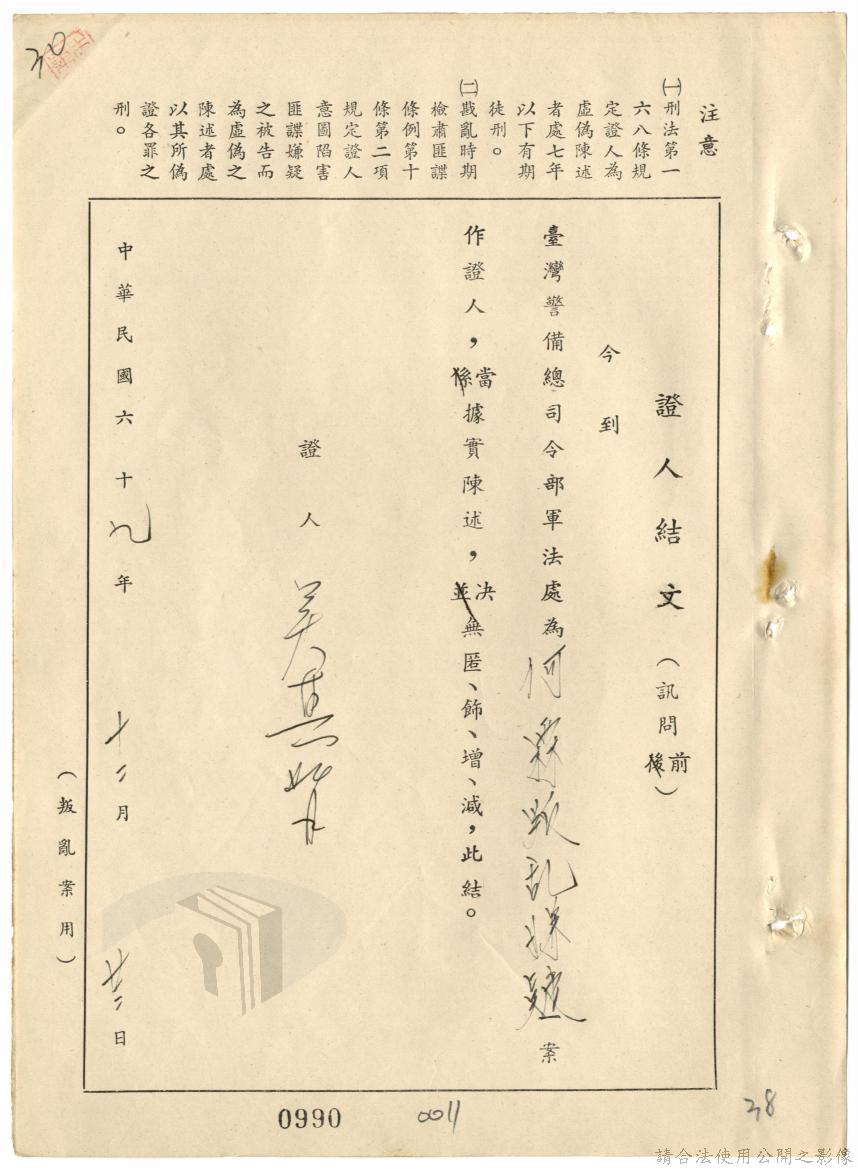 30
注意
㈠刑法第一
六八條規
定證人為
虛偽陳述
者處七年
以下有期
徒刑。
㈡戡亂時期
檢肅匪諜
條例第十
條第二項
規定證人
意圖陷害
匪諜嫌疑
之被告而
為虛偽之
陳述者處
以其所偽
證各罪之
刑。
證人結文(訊問前後)
今到
臺灣警備總司令部軍法處為何 叛乱嫌疑案
作證人,當係據實陳述,決並無匿、飾、增、減,此結。
證人
中華民國六十九年十二月廿二日
(叛亂案用)
0990
0011
38
請合法使用公開之影像